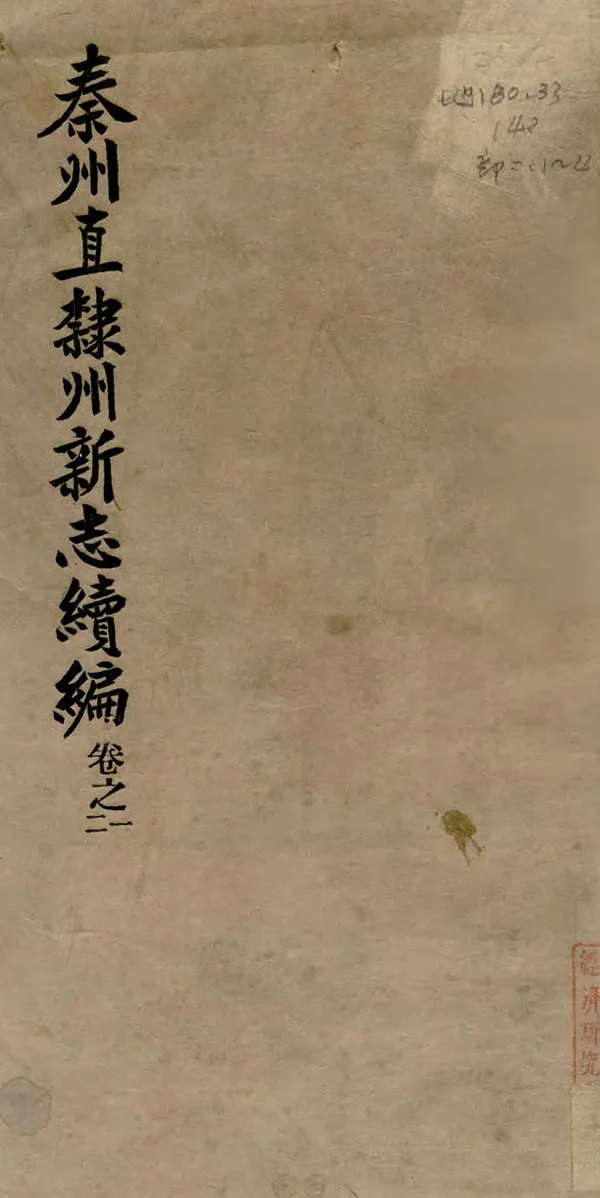 秦州直隸州新志續編 卷之一二
180.33
142
經濟研究